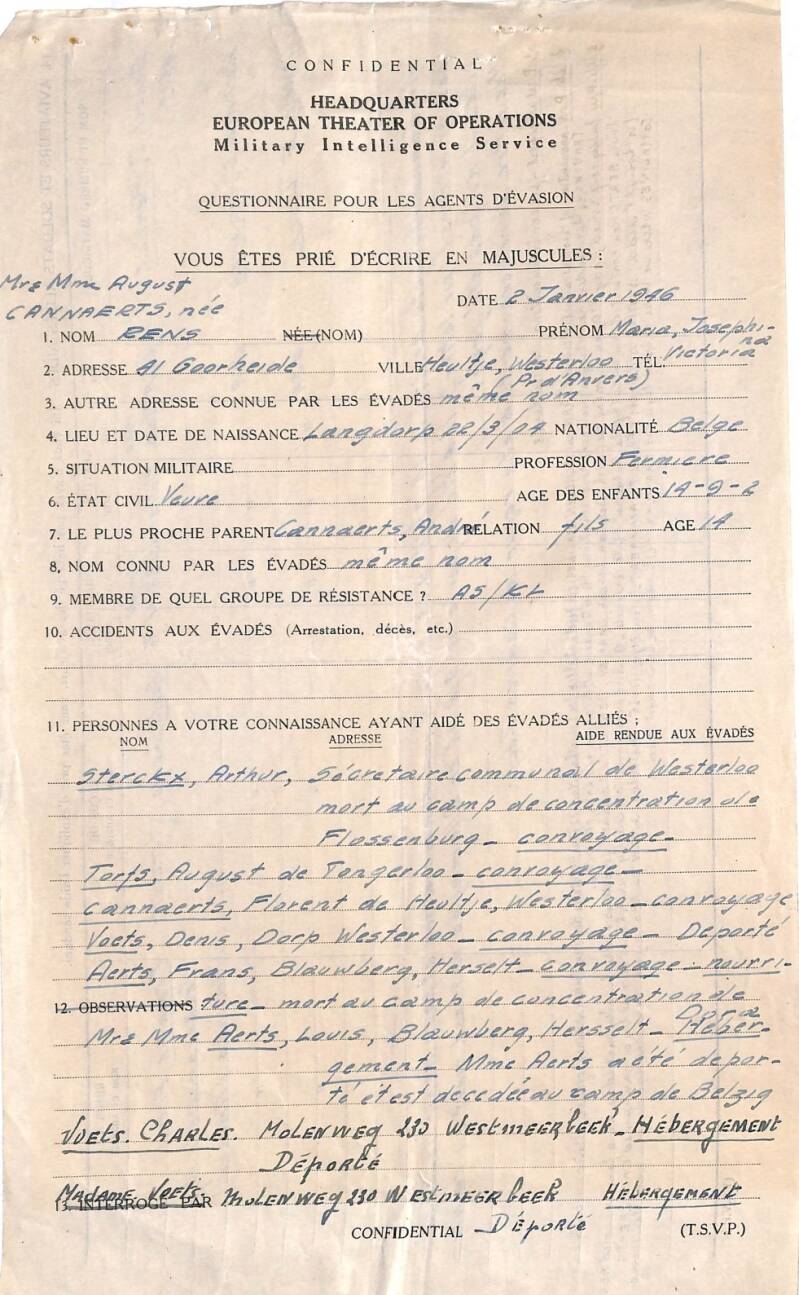 CONFIDENTIAL
HEADQUARTERS
EUROPEAN THEATER OF OPERATIONS
Military Intelligence Service
QUESTIONNAIRE POUR LES AGENTS D'ÉVASION
VOUS ÊTES PRIÉ D'ÉCRIRE EN MAJUSCULES :
Mr & Mme August
CANNAERTS, née
DATE 2 Janvier 1946
1. NOM RENS NÉE (NOM) PRÉNOM Maria, Josephina
Victoria
2. ADRESSE 41 Goorheide VILLE Heultje, Westerloo TÉL.
(Pr d'Anvers)
3. AUTRE ADRESSE CONNUE PAR LES ÉVADÉS même nom
4. LIEU ET DATE DE NAISSANCE Langdorp 22/3/04 NATIONALITÉ Belge
5. SITUATION MILITAIRE PROFESSION Fermiere
6. ÉTAT CIVIL Veuve AGE DES ENFANTS 14-9-2
7. LE PLUS PROCHE PARENT Cannaerts, André RELATION fils AGE 14
8. NOM CONNU PAR LES ÉVADÉS même nom
9. MEMBRE DE QUEL GROUPE DE RÉSISTANCE ? AS/KL
10. ACCIDENTS AUX ÉVADÉS (Arrestation, décès, etc.)
11. PERSONNES A VOTRE CONNAISSANCE AYANT AIDÉ DES ÉVADÉS ALLIÉS ;
NOM ADRESSE AIDE RENDUE AUX ÉVADÉS
Sterckx, Arthur, Sécretaire communal de Westerloo
mort au camp de concentration de
Flossenburg - convoyage -
Torfs, August de Tongerloo - convoyage -
Cannaerts, Florent de Heultje, Westerloo - convoyage
Voets, Denis, Dorp Westerloo - convoyage - Déporté
Aerts, Frans, Blauwberg, Herselt - convoyage - nourri-
12. OBSERVATIONS ture - mort au camp de concentration de
Dora
Mr & Mme Aerts, Louis, Blauwberg, Hersselt - Héber-
gement - Mme Aerts a été depor-
té et est decedée au camp de Belzig
VOETS. CHARLES. MOLENWEG 230 WESTMEERBEEK - HÉBERGEMENT
DÉPORTÉ
MADAME VOETS. MOLENWEG 230 WESTMEERBEEK HÉBERGEMENT
13. INTERROGÉ PAR
CONFIDENTIAL - DÉPORTÉ (T.S.V.P.)